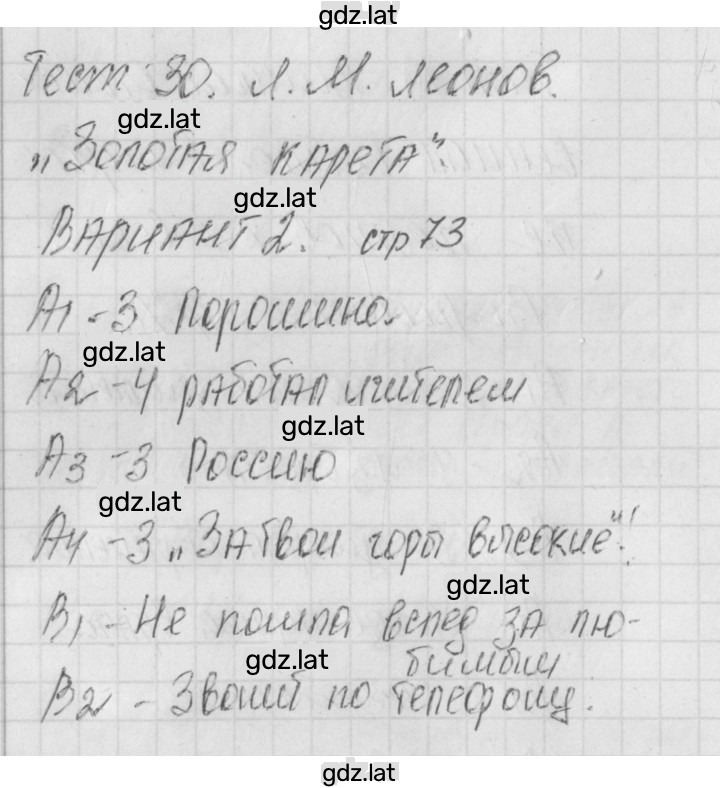 gdz.lat
Тест 30. Л. М. Леонов.
gdz.lat
„Золотая карета“.
gdz.lat
Вариант 2. стр 73
А1 - 3 Порошино.
gdz.lat
А2 - 4 работал учителем
gdz.lat
А3 - 3 Россию
gdz.lat
А4 - 3 „За твои горы высокие“!
gdz.lat
В1 - Не пошла вслед за лю-
gdz.lat
бимым
В2 - Звонит по телефону.
gdz.lat